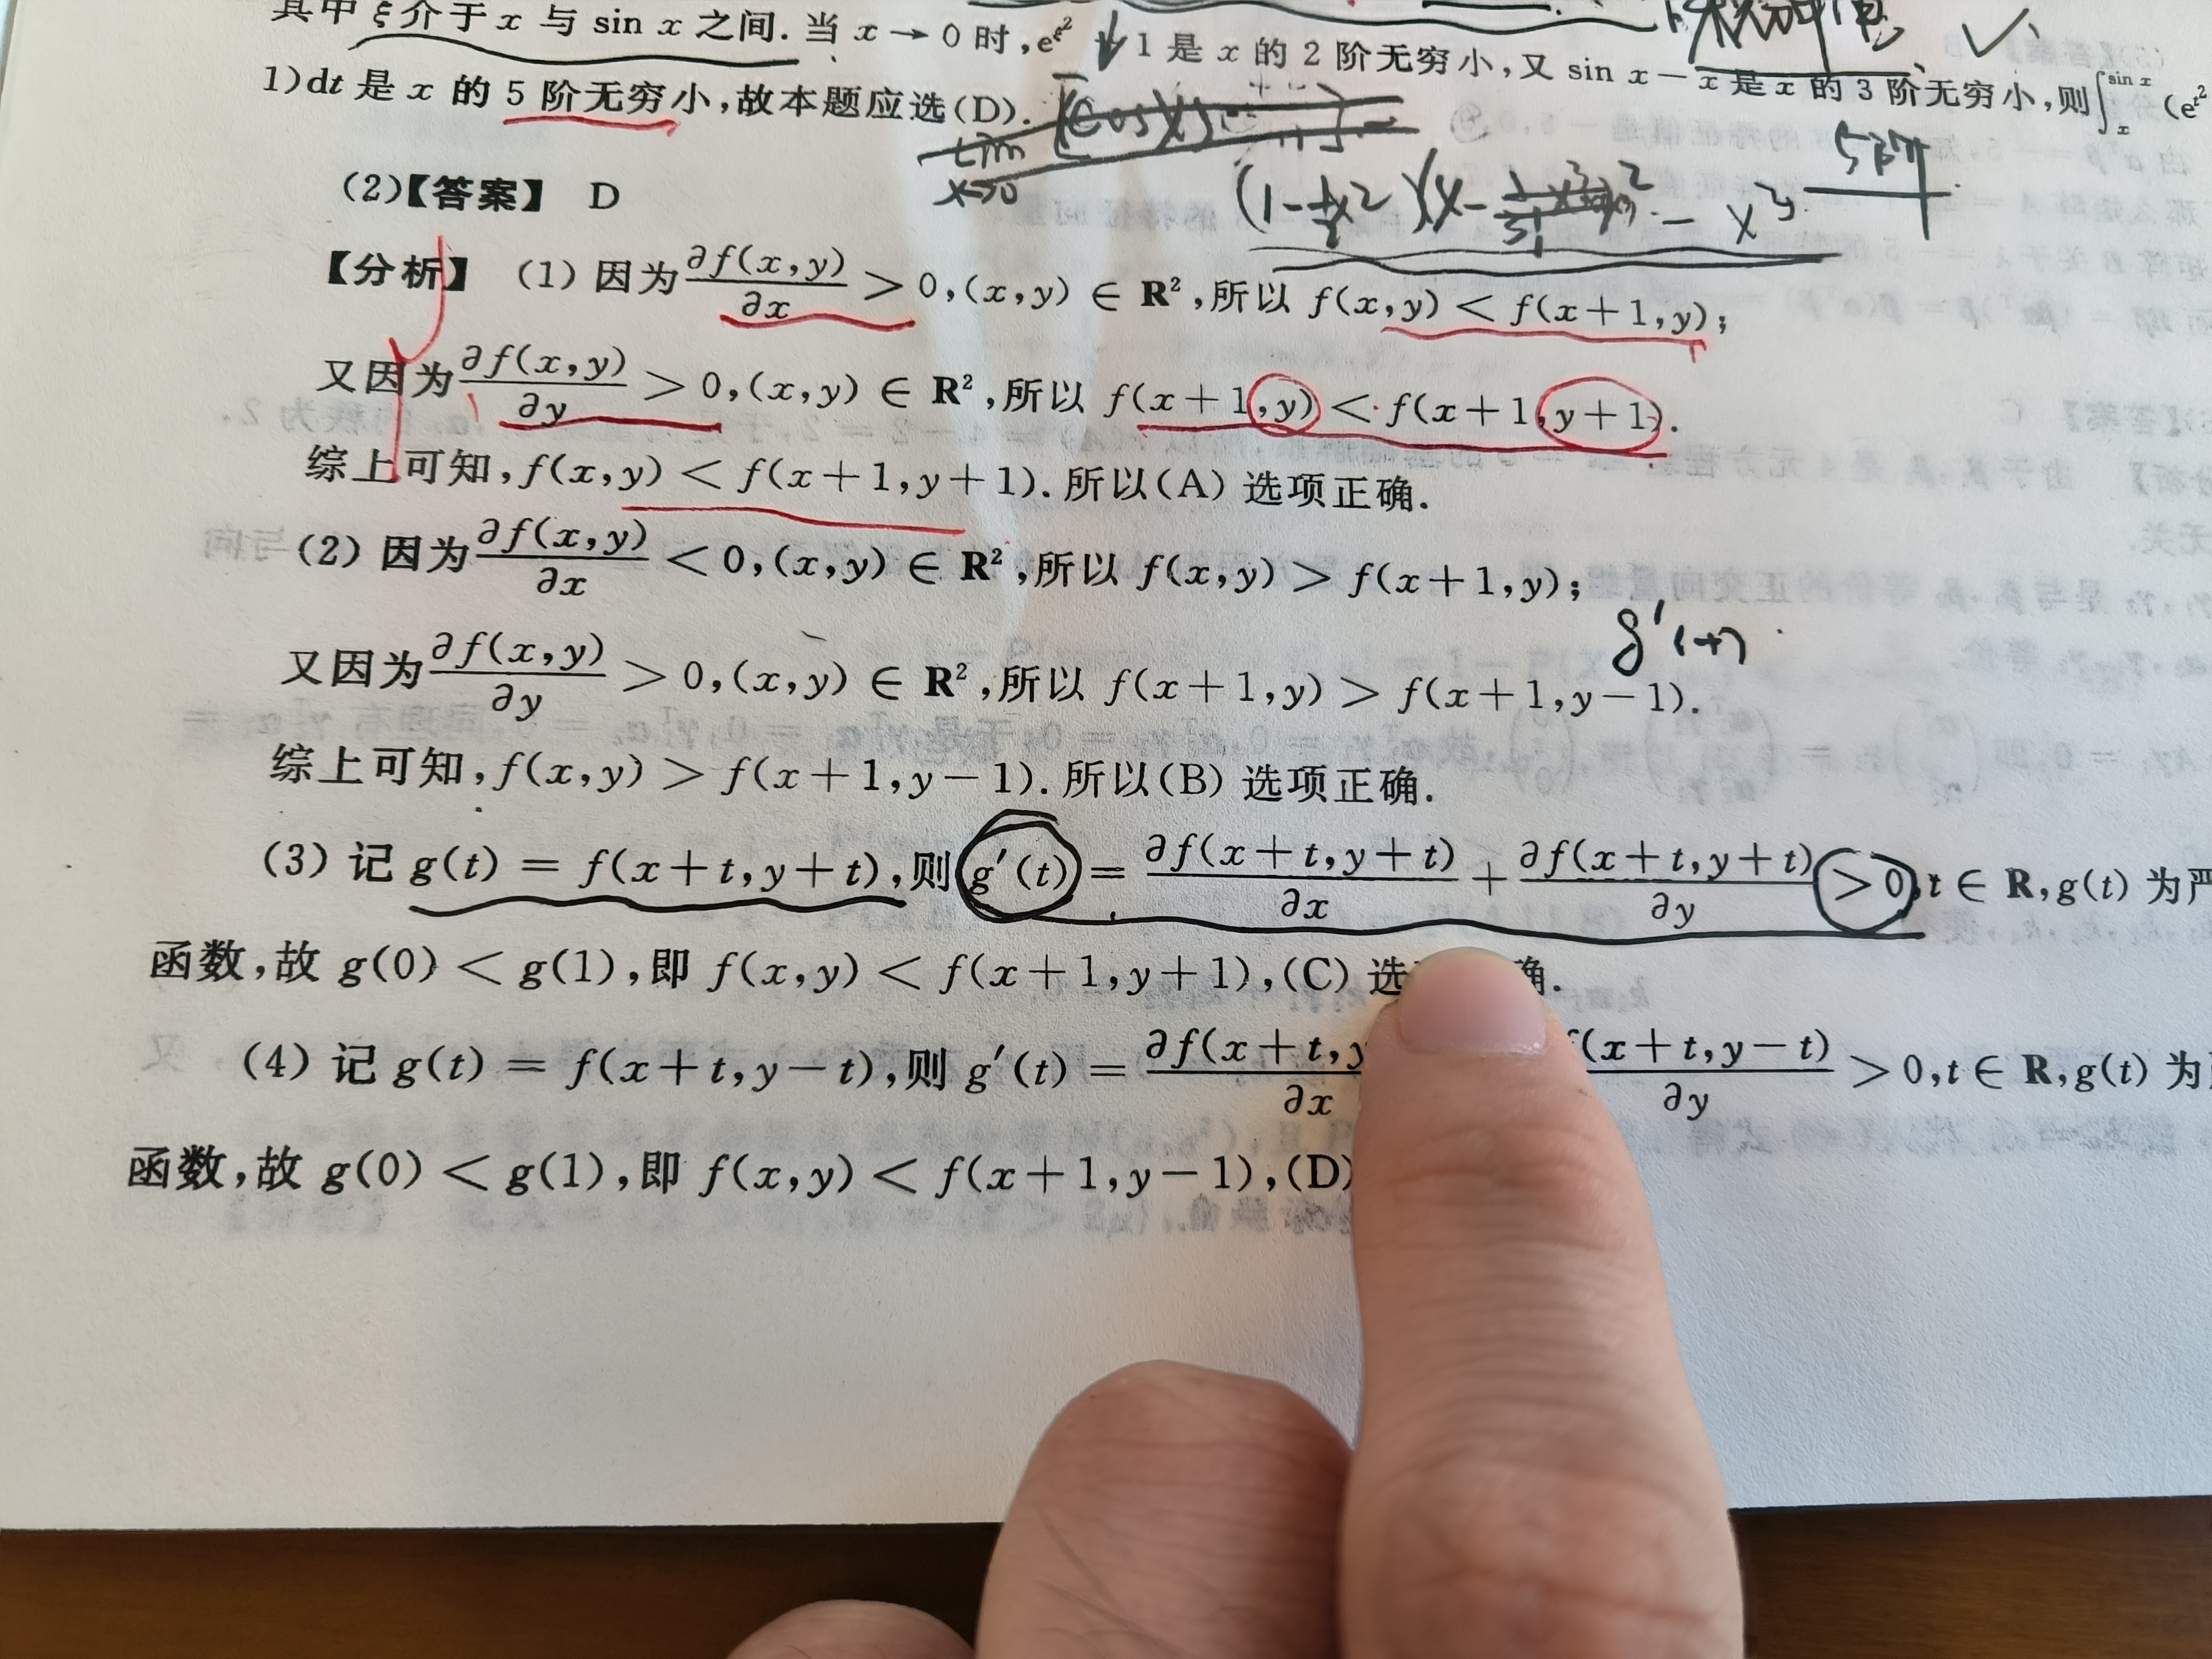 其中 ξ 介于 x 与 sin x 之间. 当 x → 0 时, e^{ξ²} 1 是 x 的 2 阶无穷小, 又 sin x − x 是 x 的 3 阶无穷小, 则 ∫_x^{sin x} (e^{t²}
1)dt 是 x 的 5 阶无穷小, 故本题应选(D).
5阶
(2)【答案】 D
【分析】 (1) 因为 ∂f(x,y)/∂x > 0, (x,y) ∈ R², 所以 f(x,y) < f(x+1,y);
又因为 ∂f(x,y)/∂y > 0, (x,y) ∈ R², 所以 f(x+1,y) < f(x+1,y+1).
综上可知, f(x,y) < f(x+1,y+1). 所以(A) 选项正确.
(2) 因为 ∂f(x,y)/∂x < 0, (x,y) ∈ R², 所以 f(x,y) > f(x+1,y);
g'(t)
又因为 ∂f(x,y)/∂y > 0, (x,y) ∈ R², 所以 f(x+1,y) > f(x+1,y−1).
综上可知, f(x,y) > f(x+1,y−1). 所以(B) 选项正确.
(3) 记 g(t) = f(x+t,y+t), 则 g′(t) = ∂f(x+t,y+t)/∂x + ∂f(x+t,y+t)/∂y > 0, t ∈ R, g(t) 为严
函数, 故 g(0) < g(1), 即 f(x,y) < f(x+1,y+1), (C) 选 确.
(4) 记 g(t) = f(x+t,y−t), 则 g′(t) = ∂f(x+t,y /∂x f(x+t,y−t)/∂y > 0, t ∈ R, g(t) 为
函数, 故 g(0) < g(1), 即 f(x,y) < f(x+1,y−1), (D)